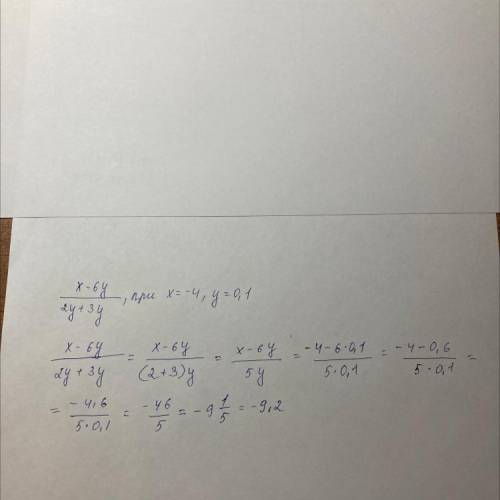 x-6y / 2y+3y , при x=-4, y=0,1
x-6y / 2y+3y = x-6y / (2+3)y = x-6y / 5y = -4-6·0,1 / 5·0,1 = -4-0,6 / 5·0,1 =
= -4,6 / 5·0,1 = -46 / 5 = -9 1/5 = -9,2